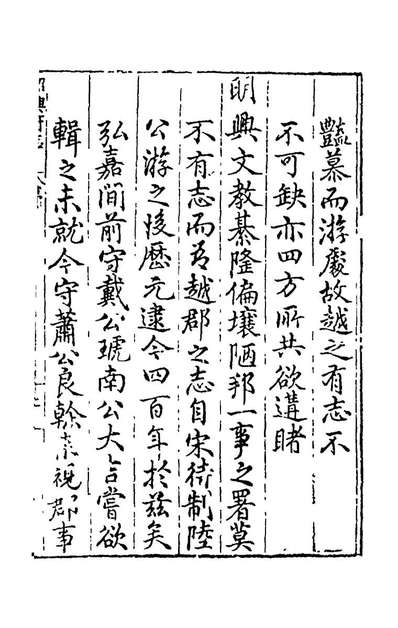 豔慕而游處故越之有志不
不可缺亦四方所共欲遘睹
明興文教綦隆偏壤陋邦一事之署莫
不有志而吾越郡之志自宋待制陸
公游之後歷元逮今四百年於茲矣
弘嘉間前守戴公琥南公大吉嘗欲
輯之未就今守蕭公良榦來視郡事
紹興府志